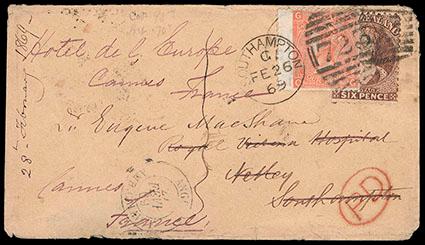 28th February 1869
Hotel de l'Europe
Cannes
France
Dr. Eugene MacShane
Royal Victoria Hospital
Netley
Southampton
Cannes
France
SOUTHAMPTON
C
FE 26
69
723
ZEALAND
SIX PENCE
PD